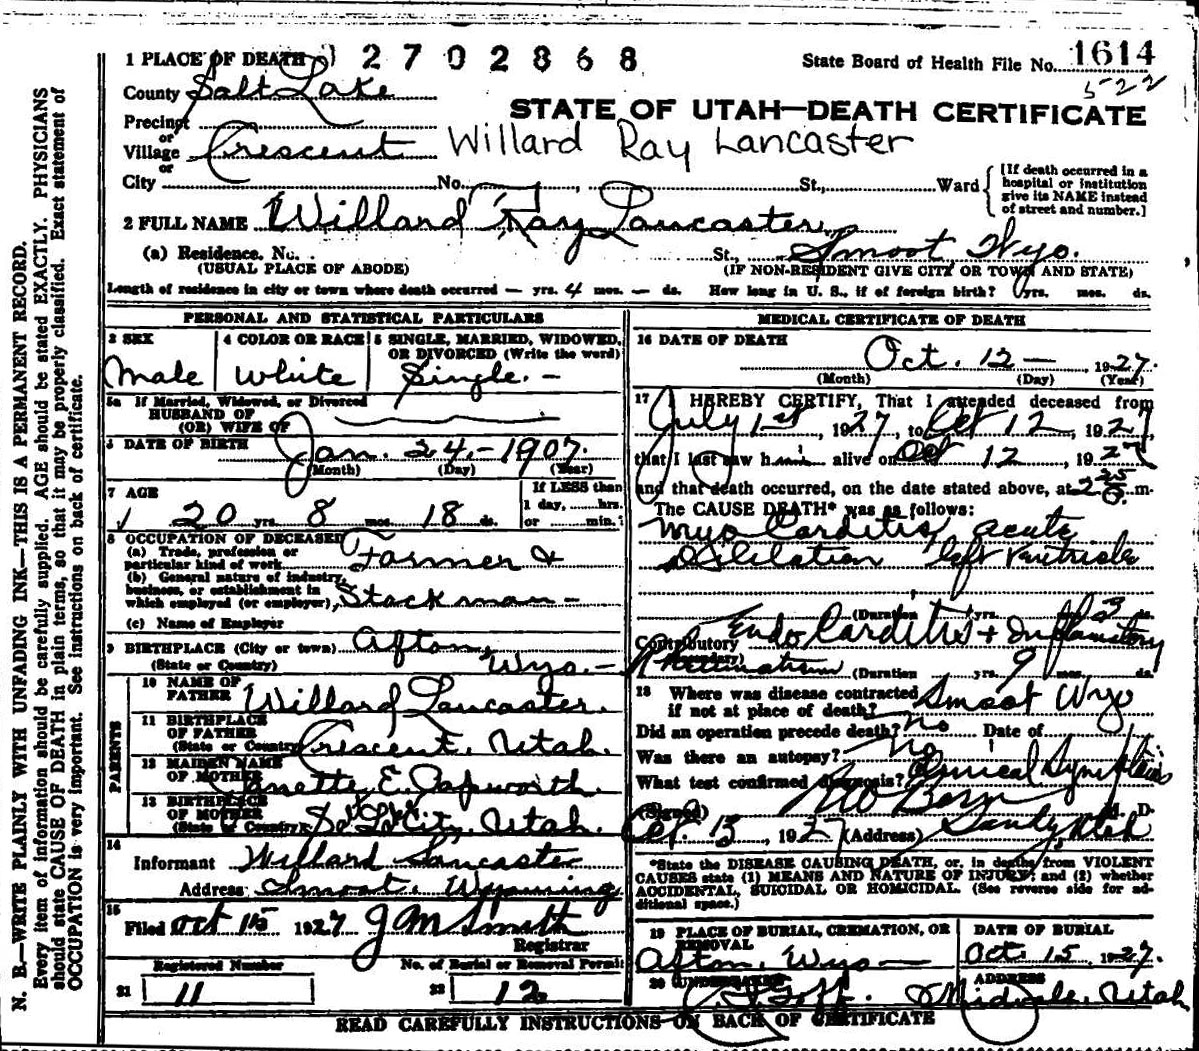 1 PLACE OF DEATH 2702868
State Board of Health File No. 1614
522
County Salt Lake
STATE OF UTAH—DEATH CERTIFICATE
Precinct
or
Village Crescent Willard Ray Lancaster
or
City No. St., Ward
[If death occurred in a
hospital or institution
give its NAME instead
of street and number.]
2 FULL NAME Willard Ray Lancaster
(a) Residence. No. St., Smoot, Wyo.
(USUAL PLACE OF ABODE) (IF NON-RESIDENT GIVE CITY OR TOWN AND STATE)
Length of residence in city or town where death occurred — yrs. 4 mos. — ds. How long in U. S., if of foreign birth? yrs. mos. ds.
PERSONAL AND STATISTICAL PARTICULARS
3 SEX 4 COLOR OR RACE 5 SINGLE, MARRIED, WIDOWED,
OR DIVORCED (Write the word)
Male White Single. -
5a If Married, Widowed, or Divorced
HUSBAND OF
(OR) WIFE OF
6 DATE OF BIRTH Jan. 24. - 1907.
(Month) (Day) (Year)
7 AGE If LESS than
1 day, ......hrs.
20 yrs. 8 mos. 18 ds. or ......min.?
8 OCCUPATION OF DECEASED
(a) Trade, profession or
particular kind of work Farmer &
(b) General nature of industry,
business, or establishment in
which employed (or employer) Stockman -
(c) Name of Employer
9 BIRTHPLACE (City or town) Afton,
(State or Country) Wyo. -
PARENTS
10 NAME OF
FATHER Willard Lancaster.
11 BIRTHPLACE
OF FATHER
(State or Country) Crescent, Utah.
12 MAIDEN NAME
OF MOTHER E. Papworth
13 BIRTHPLACE
OF MOTHER
(State or Country) City, Utah.
14
Informant Willard Lancaster
Address Smoot, Wyoming
15
Filed Oct 15 1927 J M Smith
Registrar
Registered Number No. of Burial or Removal Permit
21 11 22 12
MEDICAL CERTIFICATE OF DEATH
16 DATE OF DEATH
Oct. 12 — , 1927.
(Month) (Day) (Year)
17 I HEREBY CERTIFY, That I attended deceased from
July 1st, 1927, to Oct 12, 1927,
that I last saw him alive on Oct 12, 1927
and that death occurred, on the date stated above, at 2 25 m.
The CAUSE DEATH* was as follows:
Myo Carditis, acute
Dilitation left Ventricle
(Duration) yrs. 3 ds.
Contributory Endo Carditis + Inflamitory
Rheumatism (Duration yrs. 9 mos. ds.
18 Where was disease contracted
if not at place of death? Smoot Wyo
Did an operation precede death? no Date of
Was there an autopsy? No
What test confirmed diagnosis? Clinical Symptoms
(Signed) M. D.
Oct. 13, 1927 (Address) Sandy, Utah
*State the DISEASE CAUSING DEATH, or, in deaths from VIOLENT
CAUSES state (1) MEANS AND NATURE OF INJURY; and (2) whether
ACCIDENTAL, SUICIDAL OR HOMICIDAL. (See reverse side for ad-
ditional space.)
19 PLACE OF BURIAL, CREMATION, OR
REMOVAL
Afton, Wyo —
DATE OF BURIAL
Oct. 15, 1927.
20 UNDERTAKER Goff.
ADDRESS
Midvale, Utah
READ CAREFULLY INSTRUCTIONS ON BACK OF CERTIFICATE
N. B.—WRITE PLAINLY WITH UNFADING INK—THIS IS A PERMANENT RECORD.
Every item of information should be carefully supplied. AGE should be stated EXACTLY. PHYSICIANS
should state CAUSE OF DEATH in plain terms, so that it may be properly classified. Exact statement of
OCCUPATION is very important. See instructions on back of certificate.